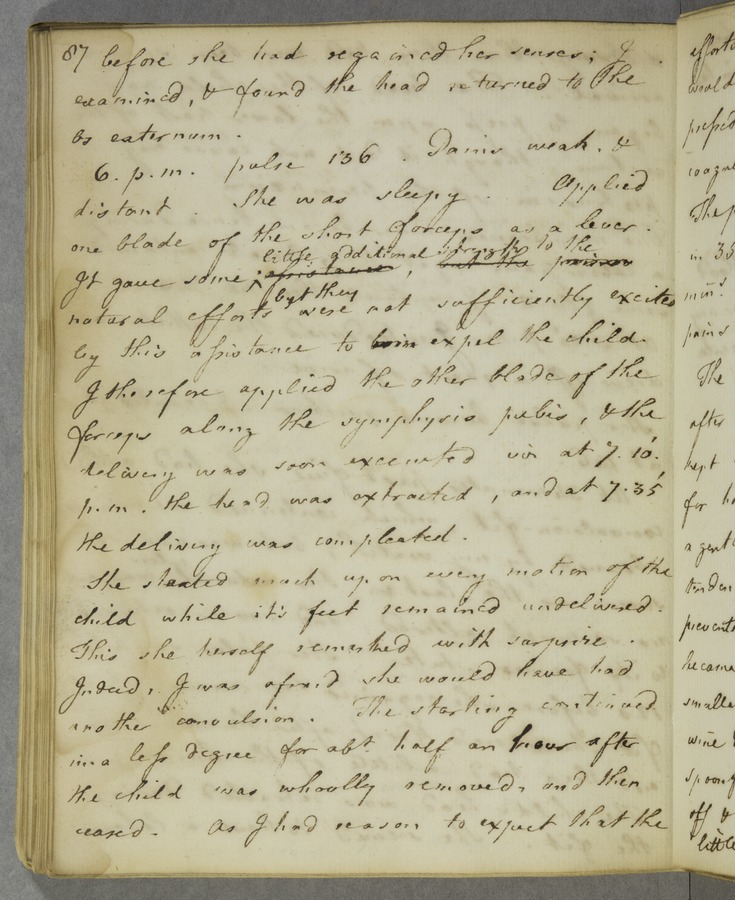 87 before she had regained her senses; I
examined, & found the head returned to the
os externum.
6. p.m. pulse 136. Pains weak. &
distant. She was sleepy. Applied
one blade of the short forceps as a lever.
little additional strength to the
It gave some assistance, but the
but they
natural efforts were not sufficiently excited
by this assistance to expel the child.
I therefore applied the other blade of the
forceps along the symphysis pubis, & the
delivery was soon executed viz at 7.10'.
p.m. the head was extracted, and at 7.35'
the delivery was compleated.
She started much upon every motion of the
child while it's feet remained undelivered.
This she herself remarked with surprize.
Indeed, I was afraid she would have had
another convulsion. The starting continued
in a less degree for abt. half an hour after
the child was wholly removed, and then
ceased. As I had reason to expect that the
effort
would
in 35
mins.
pains
The
after
kept
for
a gent
prevent
became
smalle
wine
spoonf
off &
little